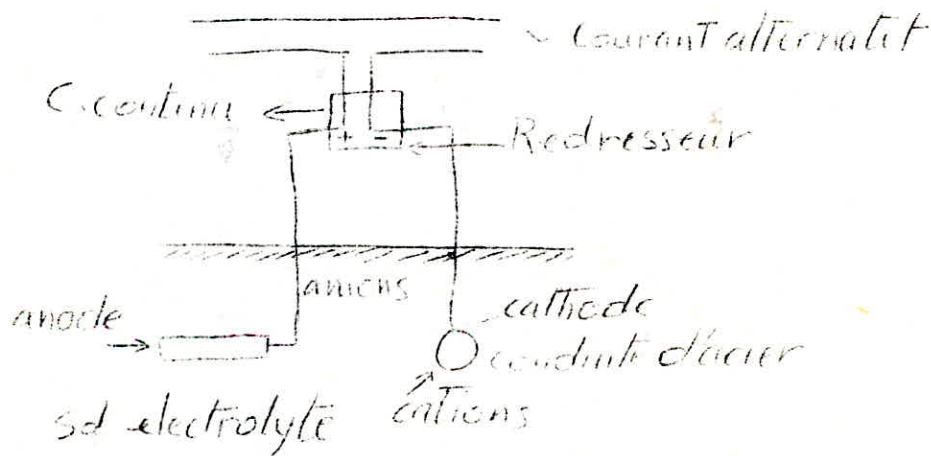 ~ Courant alternatif
C. continu
+ -
Redresseur
anions
anode
cathode
conduite d'acier
cations
Sol electrolyte